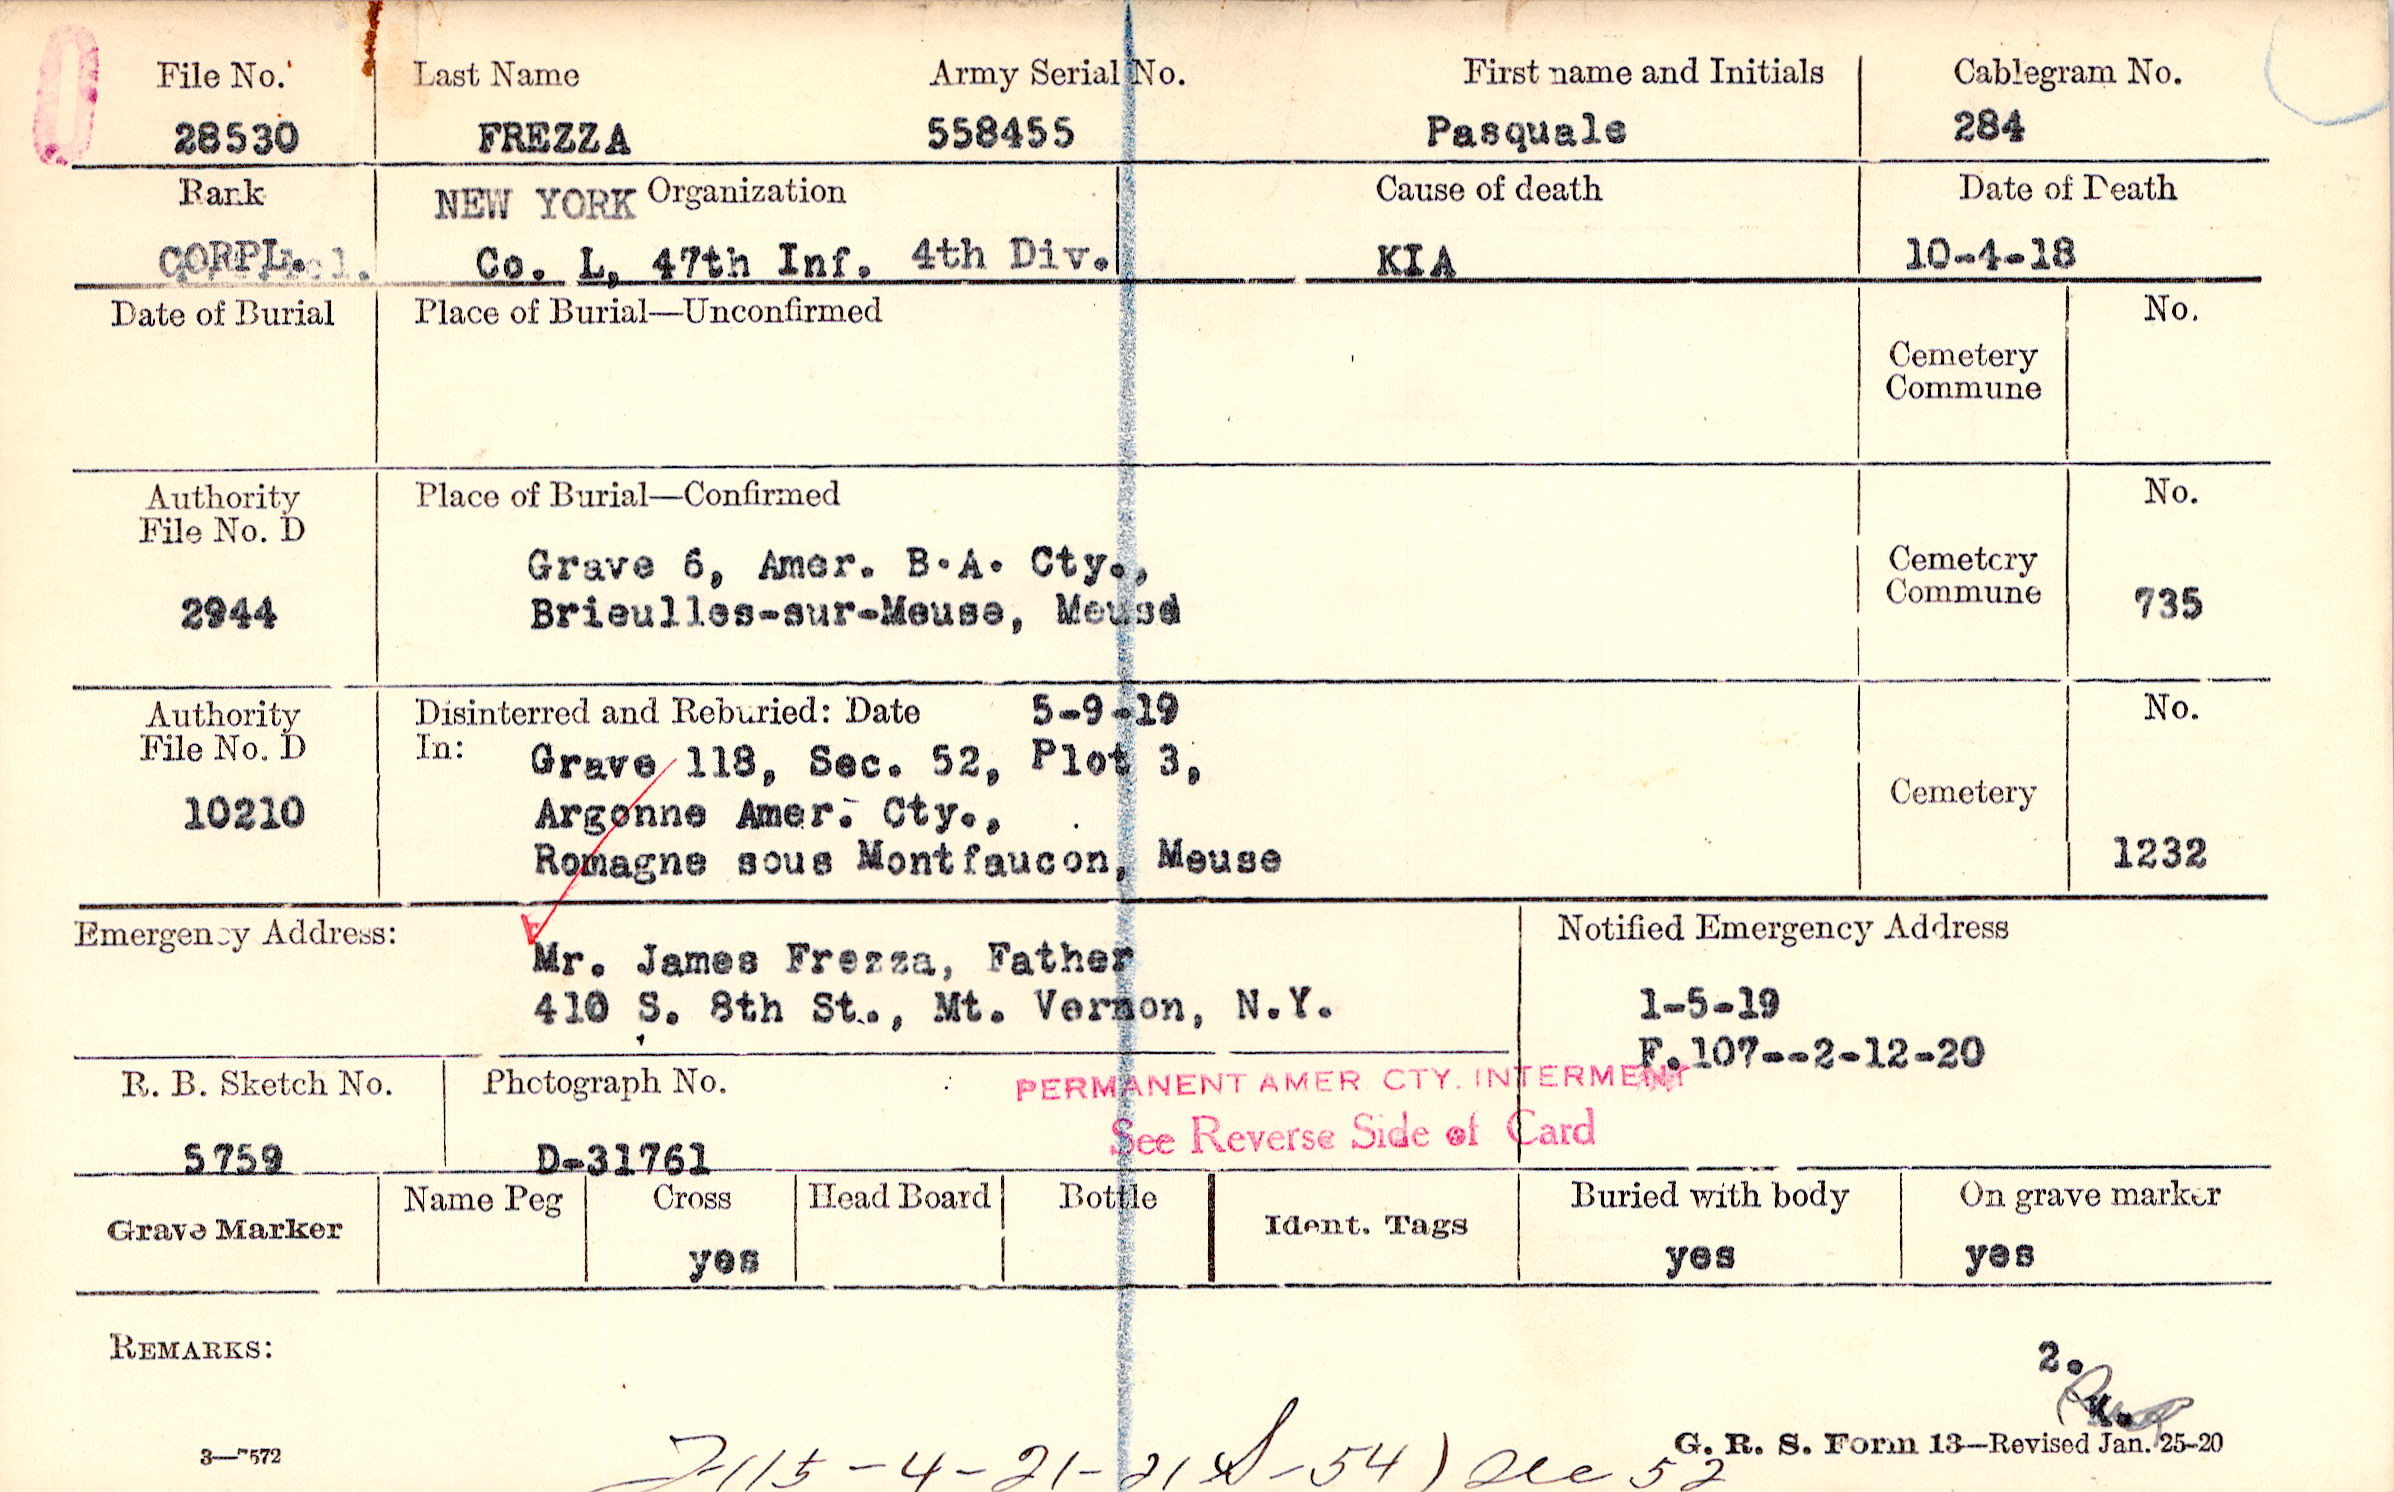 File No. Last Name Army Serial No. First name and Initials Cablegram No.
28530 FREZZA 558455 Pasquale 284
Rank NEW YORK Organization Cause of death Date of Death
CORPL. Co. L, 47th Inf. 4th Div. KIA 10-4-18
Date of Burial Place of Burial—Unconfirmed No.
Cemetery
Commune
Authority Place of Burial—Confirmed No.
File No. D
Grave 6, Amer. B.A. Cty., Cemetery
2944 Brieulles-sur-Meuse, Meuse Commune 735
Authority Disinterred and Reburied: Date 5-9-19 No.
File No. D In: Grave 118, Sec. 52, Plot 3,
10210 Argonne Amer. Cty., Cemetery
Romagne sous Montfaucon, Meuse 1232
Emergency Address: Notified Emergency Address
Mr. James Frezza, Father
410 S. 8th St., Mt. Vernon, N.Y. 1-5-19
F.107--2-12-20
R. B. Sketch No. Photograph No. PERMANENT AMER CTY. INTERMENT
See Reverse Side of Card
5759 D-31761
Grave Marker Name Peg Cross Head Board Bottle Ident. Tags Buried with body On grave marker
yes yes yes
REMARKS:
2.
K.
3—7572 G. R. S. Form 13—Revised Jan. 25-20
115-4-21-21 S-54) Sec 52